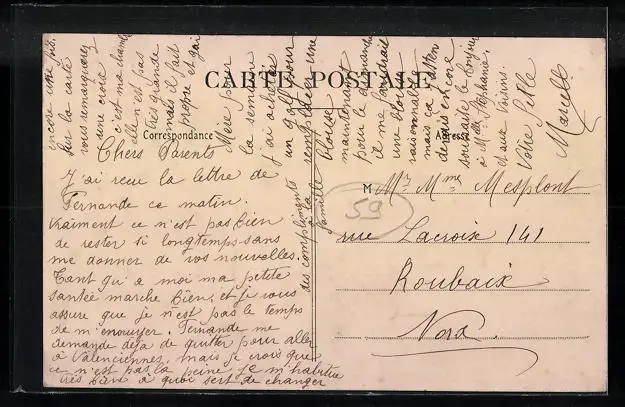 CARTE POSTALE
Correspondance
Adresse
Chers Parents
J'ai reçu la lettre de
Fernande ce matin.
vraiment ce n'est pas bien
de rester si longtemps sans
me donner de vos nouvelles.
Tant qu'a moi ma petite
santée marche bien, et je vous
assure que je n'est pas le temps
de m'ennuyer. Fernande me
demande déja de quitter pour aller
à Valenciennes, mais je crois que
ce n'est pas la peine, je m'habitue
très bien à quoi sert de changer
encore une fois.
Sur la carte
vous remarquerez
une croix
c'est ma chambre
elle n'est pas
très grande
mais il fait
propre et j'ai
Mère pour
la semaine
j'ai acheter
un
pour
remplacer une
blouse
maintenant
pour le dimanche
il me faudrait
une blouse
raisonnable
mais ça
encore
souhaite le bonjour
à Melle Stéphanie
et aux Voisins.
Votre fille
Marcelle
des compliments
à la
famille
M Mr Mme Mesplont
59
rue Lacroix 141
Roubaix
Nord.